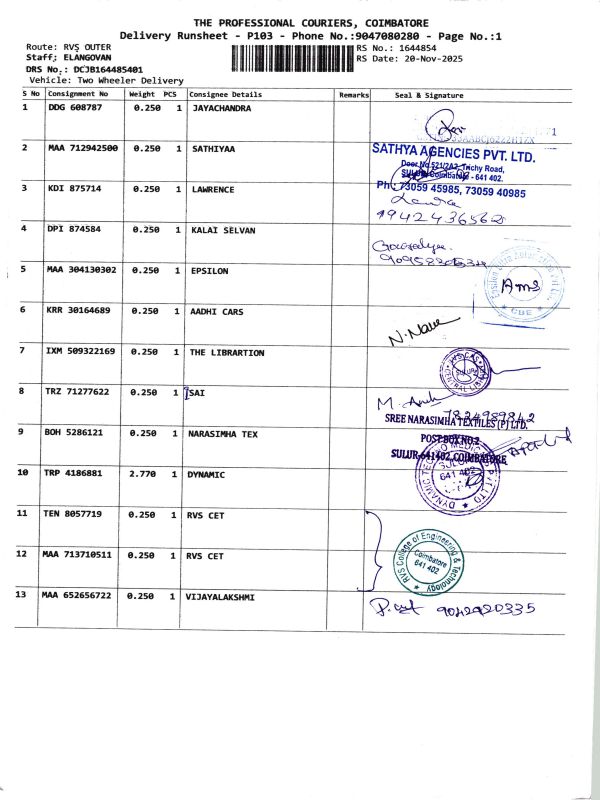 THE PROFESSIONAL COURIERS, COIMBATORE
Delivery Runsheet - P103 - Phone No.:9047080280 - Page No.:1
Route: RVS OUTER
RS No.: 1644854
Staff; ELANGOVAN
RS Date: 20-Nov-2025
DRS No.: DCJB164485401
Vehicle: Two Wheeler Delivery
S No Consignment No Weight PCS Consignee Details Remarks Seal & Signature
1 DDG 608787 0.250 1 JAYACHANDRA
2 MAA 712942500 0.250 1 SATHIYAA
SATHYA AGENCIES PVT. LTD.
Door No.521/2A2, Trichy Road,
SULUR, Coimbatore - 641 402.
Ph: 73059 45985, 73059 40985
3 KDI 875714 0.250 1 LAWRENCE
9942436562
4 DPI 874584 0.250 1 KALAI SELVAN
5 MAA 304130302 0.250 1 EPSILON
Ams
CBE
6 KRR 30164689 0.250 1 AADHI CARS
7 IXM 509322169 0.250 1 THE LIBRARTION
SULUR
8 TRZ 71277622 0.250 1 SAI
7824989842
SREE NARASIMHA TEXTILES (P) LTD.
9 BOH 5286121 0.250 1 NARASIMHA TEX
POST BOX NO.2
SULUR-641402, COIMBATORE
10 TRP 4186881 2.770 1 DYNAMIC
SULUR
641 402
11 TEN 8057719 0.250 1 RVS CET
12 MAA 713710511 0.250 1 RVS CET
RVS College of Engineering & Technology
Coimbatore
641 402
13 MAA 652656722 0.250 1 VIJAYALAKSHMI
9042920335